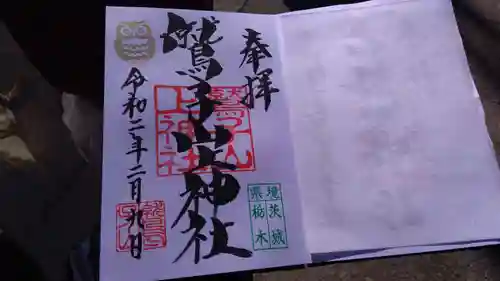 奉拝
鷲子山上神社
鷲子山
上神社
令和二年二月九日
境茨城
県栃木